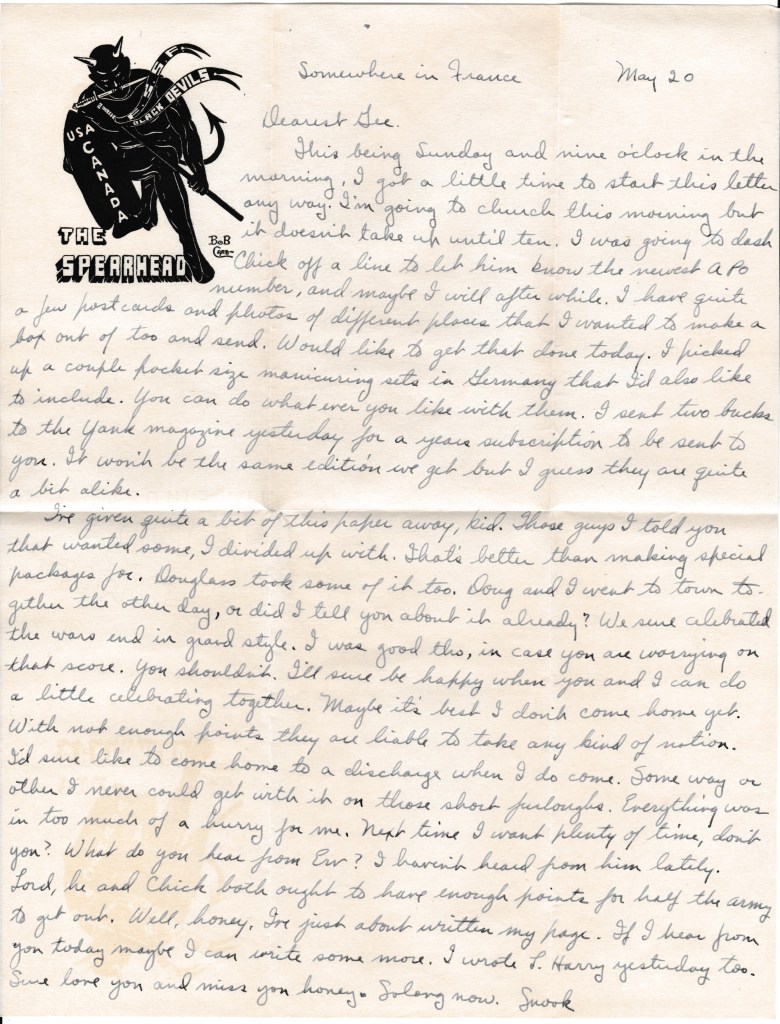 F.S.S.F.
BLACK DEVILS
USA
CANADA
THE
SPEARHEAD
BOB
Somewhere in France May 20
Dearest Gee.
This being Sunday and nine o'clock in the
morning, I got a little time to start this letter
any way. I'm going to church this morning but
it doesn't take up until ten. I was going to dash
Chick off a line to let him know the newest APO
number, and maybe I will after while. I have quite
a few postcards and photos of different places that I wanted to make a
box out of too and send. Would like to get that done today. I picked
up a couple pocket size manicuring sets in Germany that I'd also like
to include. You can do what ever you like with them. I sent two bucks
to the Yank magazine yesterday for a years subscription to be sent to
you. It won't be the same edition we get but I guess they are quite
a bit alike.
I've given quite a bit of this paper away, kid. Those guys I told you
that wanted some, I divided up with. That's better than making special
packages for. Douglass took some of it too. Doug and I went to town to-
gether the other day, or did I tell you about it already? We sure celebrated
the wars end in grand style. I was good tho, in case you are worrying on
that score. You shouldn't. I'll sure be happy when you and I can do
a little celebrating together. Maybe it's best I don't come home yet.
With not enough points they are liable to take any kind of notion.
I'd sure like to come home to a discharge when I do come. Some way or
other I never could get with it on those short furloughs. Everything was
in too much of a hurry for me. Next time I want plenty of time, don't
you? What do you hear from Erv? I haven't heard from him lately.
Lord, he and Chick both ought to have enough points for half the army
to get out. Well, honey, I've just about written my page. If I hear from
you today maybe I can write some more. I wrote L. Harry yesterday too.
Sure love you and miss you honey. So long now. Snook